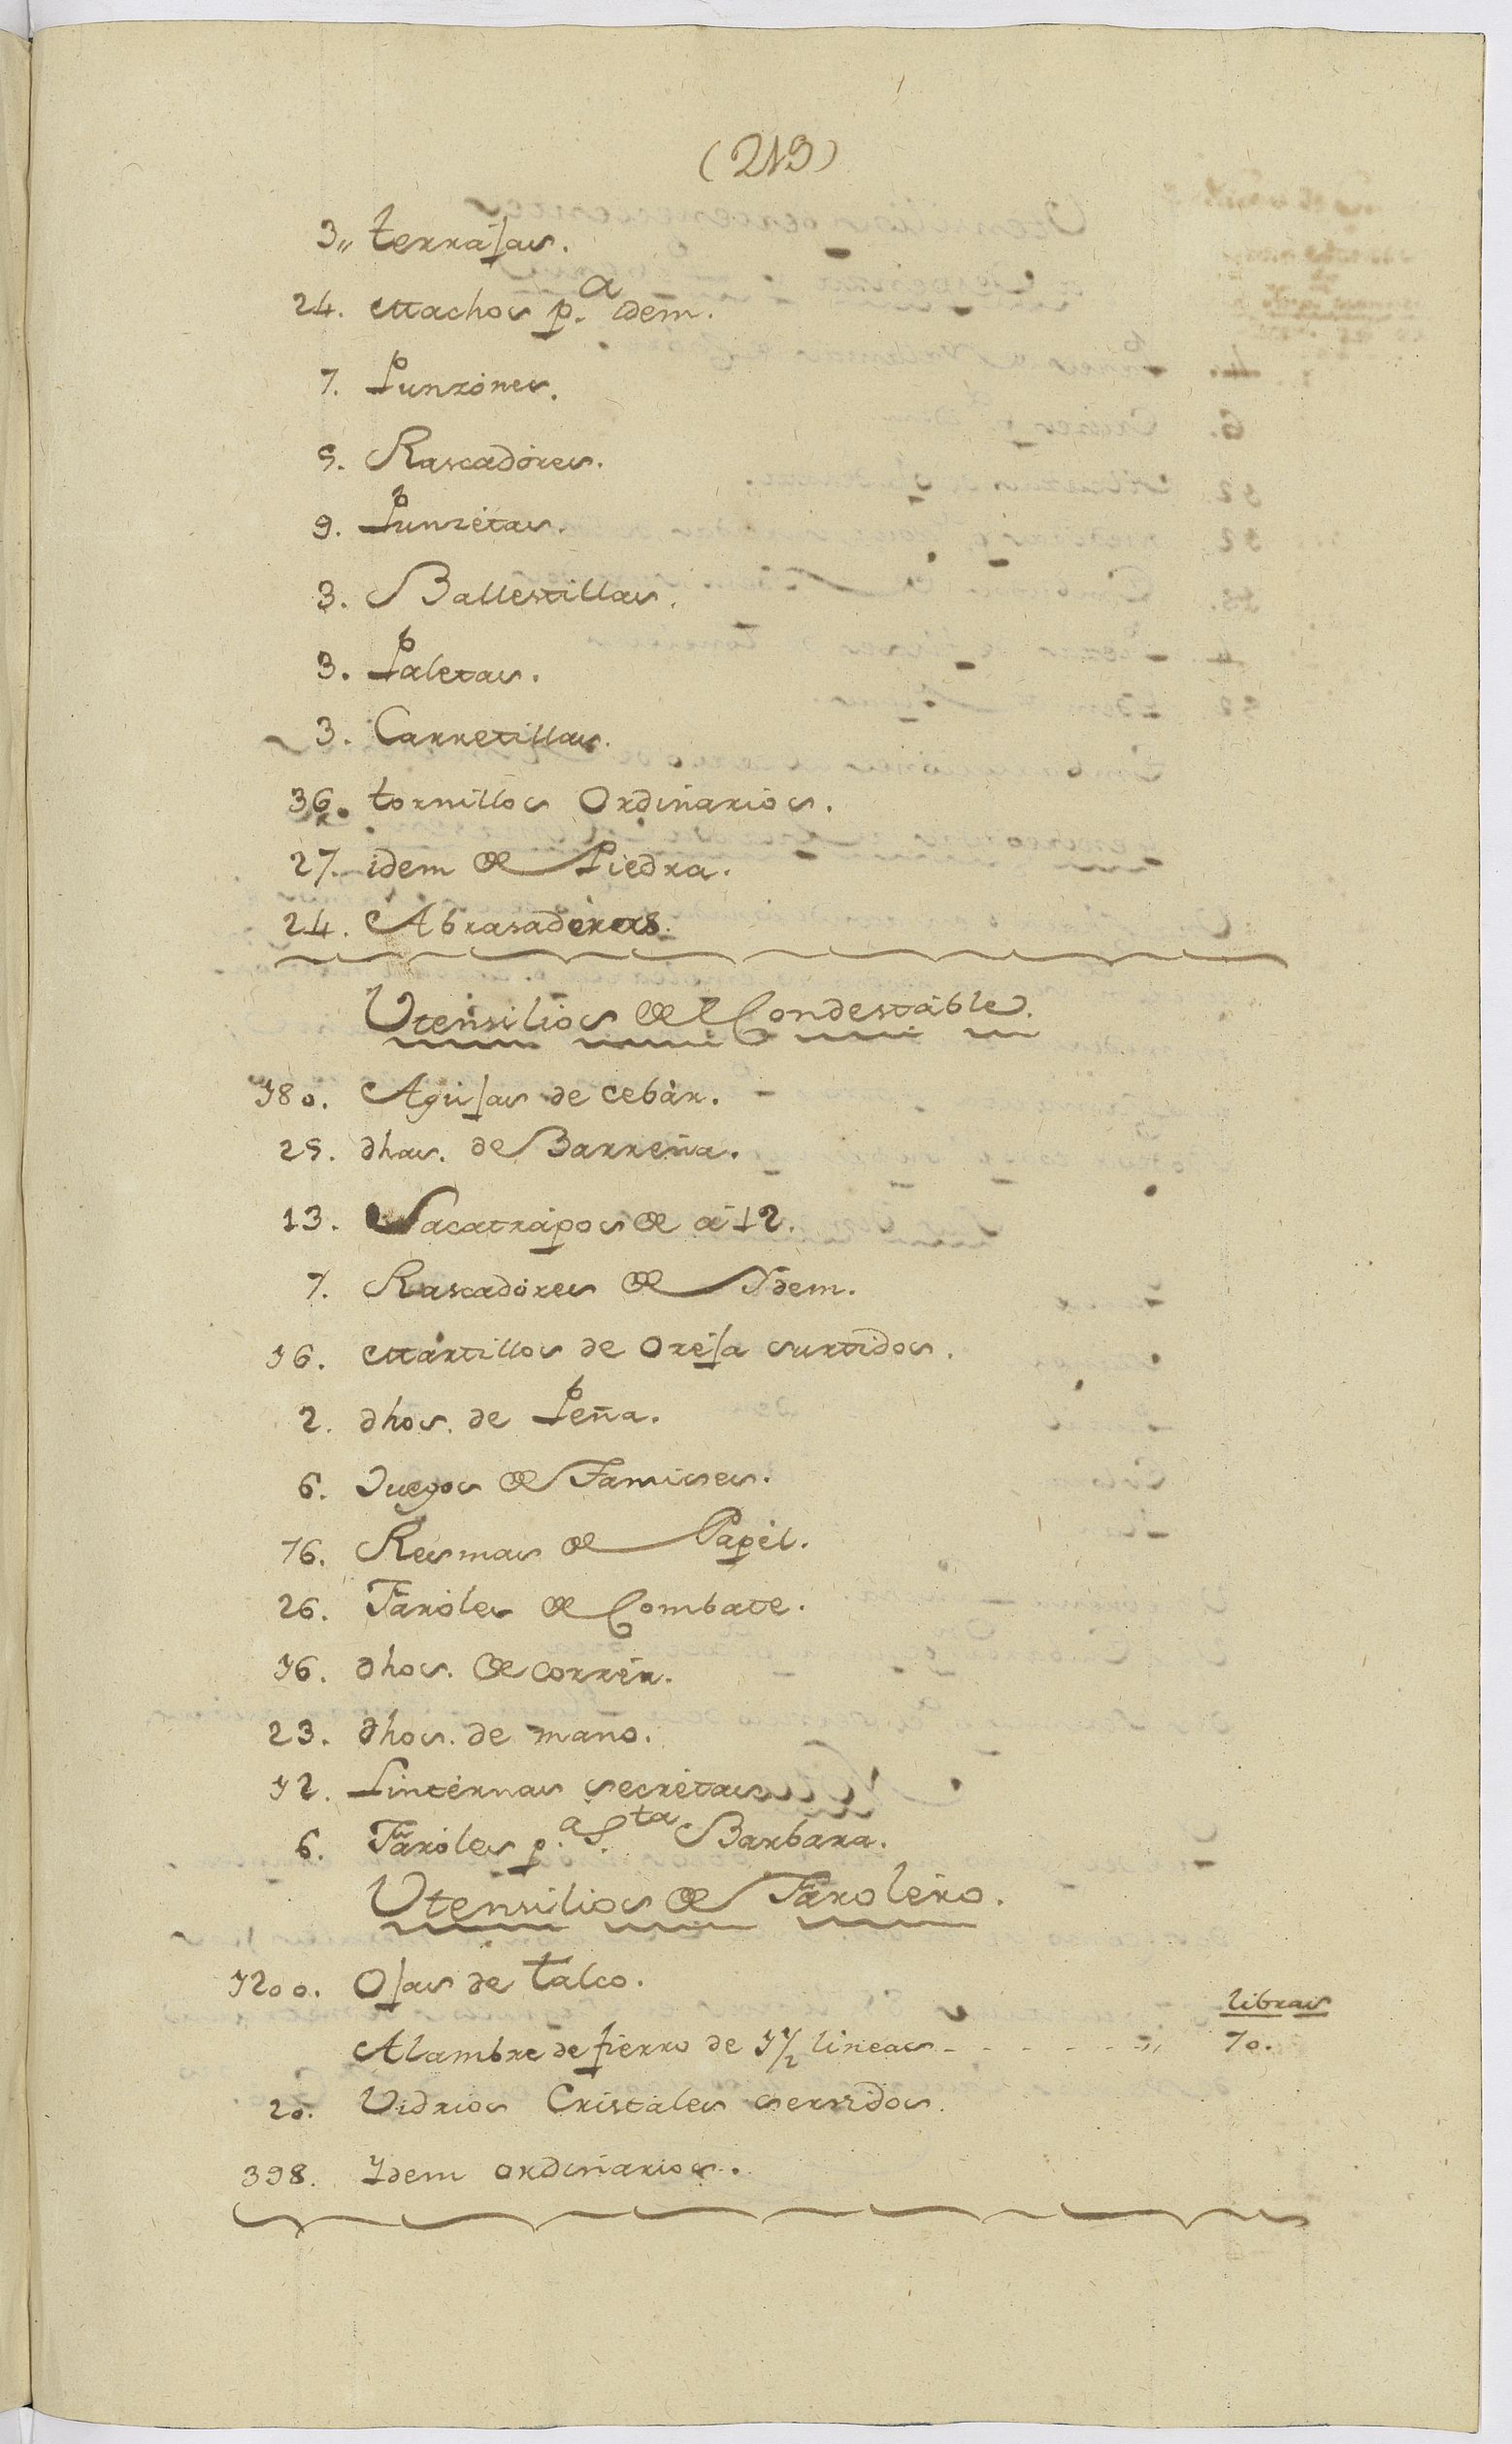 (213)
3,, terrajas.
24. Machos p.a idem.
7. Punzones.
5. Rascadores.
9. Punzetas.
3. Ballestillas.
3. Paletas.
3. Carretillas.
36. tornillos Ordinarios.
27. idem de Piedra.
24. Abrasaderas.
Utensilios de Condestable.
180. Agujas de cebar.
25. dhas. de Barrena.
13. Sacatrapos de a 12.
7. Rascadores de Ydem.
16. Martillos de Oreja surtidos.
2. dhos. de Peña.
6. Juegos de Tamises.
16. Resmas de Papel.
26. Faroles de Combate.
16. dhos. de correr.
23. dhos. de mano.
12. Linternas secretas
6. Faroles p.a S.ta Barbara.
Utensilios de Farolero.
1200. Ojas de talco.
libras
Alambre de fierro de 1 1/2 lineas - - - - - - ,, 10.
20. Vidrios Cristales
398. Ydem ordinarios.